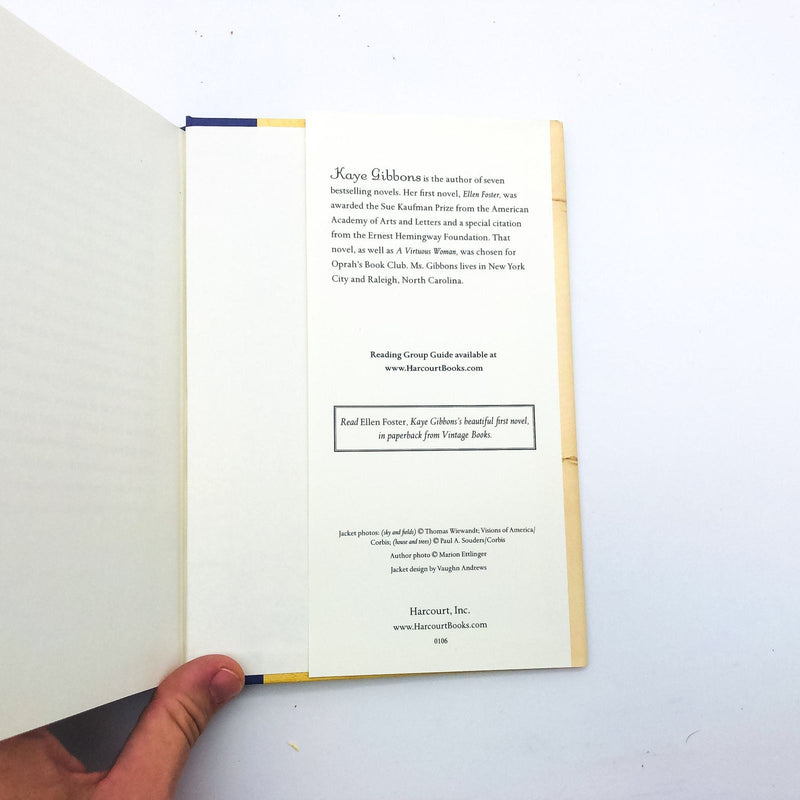 Kaye Gibbons is the author of seven
bestselling novels. Her first novel, Ellen Foster, was
awarded the Sue Kaufman Prize from the American
Academy of Arts and Letters and a special citation
from the Ernest Hemingway Foundation. That
novel, as well as A Virtuous Woman, was chosen for
Oprah's Book Club. Ms. Gibbons lives in New York
City and Raleigh, North Carolina.
Reading Group Guide available at
www.HarcourtBooks.com
Read Ellen Foster, Kaye Gibbons's beautiful first novel,
in paperback from Vintage Books.
Jacket photos: (sky and fields) © Thomas Wiewandt; Visions of America/
Corbis; (house and trees) © Paul A. Souders/Corbis
Author photo © Marion Ettlinger
Jacket design by Vaughn Andrews
Harcourt, Inc.
www.HarcourtBooks.com
0106